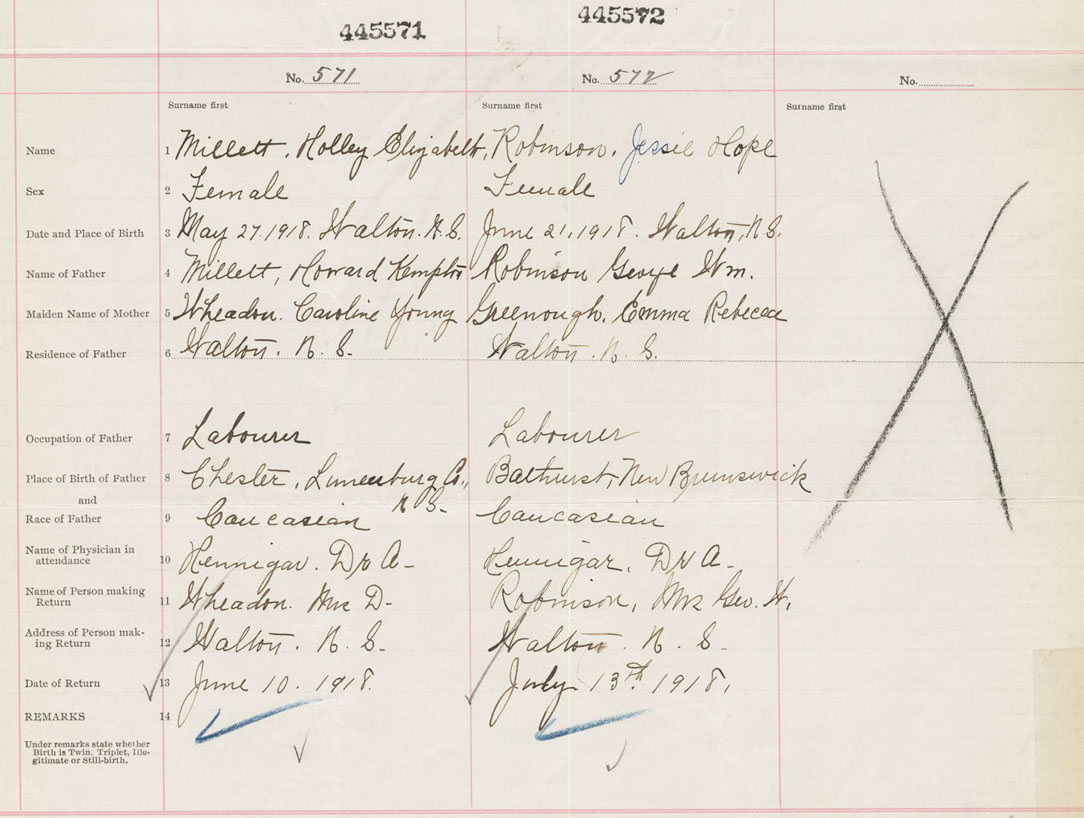 445571 445572
No. 571 No. 572 No.
Surname first Surname first Surname first
Name 1 Millett, Holley Elizabeth, Robinson, Jessie Hope
Sex 2 Female Female
Date and Place of Birth 3 May 27.1918. Walton. N.S. June 21, 1918. Walton, N.S.
Name of Father 4 Millett, Howard Kempton Robinson George Wm.
Maiden Name of Mother 5 Wheadon. Caroline Young Greenough, Emma Rebecca
Residence of Father 6 Walton. N. S. Walton. N. S.
Occupation of Father 7 Labourer Labourer
Place of Birth of Father 8 Chester, Lunenburg Co., Bathurst, New Brunswick
and N S.
Race of Father 9 Caucasian Caucasian
Name of Physician in
attendance 10 Hennigar. Dr A- Hennigar, Dr A-
Name of Person making
Return 11 Wheadon. Mrs D- Robinson, Mrs Geo. W.
Address of Person mak-
ing Return 12 Walton. N. S. Walton. N. S.
Date of Return 13 June 10. 1918. July 13th 1918.
REMARKS 14
Under remarks state whether
Birth is Twin, Triplet, Ille-
gitimate or Still-birth.